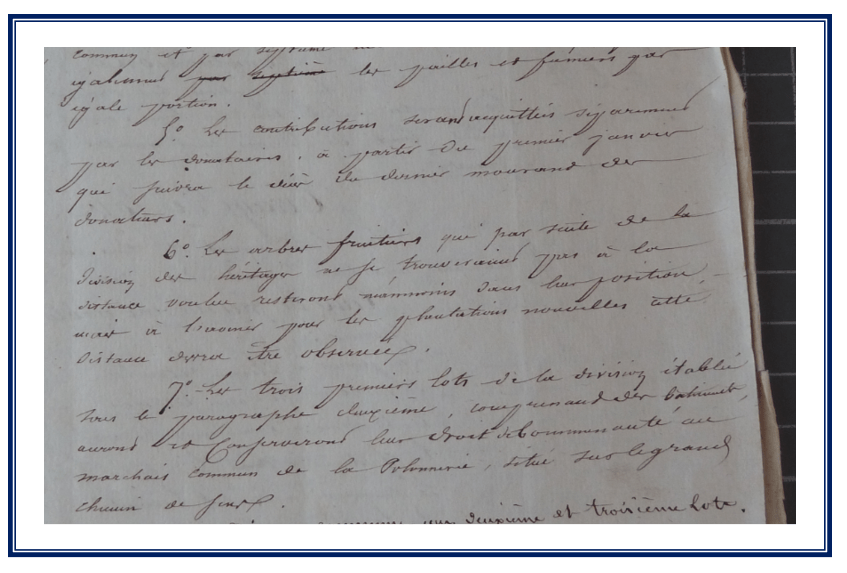 commun et par septième
également par septième les pailles et fumiers par
égale portion.
5.° Les contributions seront acquittées séparement
par les donataires, à partir du premier janvier
qui suivra le décès du dernier mourand des
donateurs.
6.° Les arbres fruitiers qui par suite de la
division des héritages ne se trouveraient pas à la
distance voulue resteront néanmoins dans leur position,
mais à l'avenir pour les plantations nouvelles cette
distance devra être observée.
7.° Les trois premiers lots de la division établie
sous le paragraphe deuxième, comprenand des batiments,
auront et Conserveront leur droit de Communauté au
marchais commun de la Polonnerie, situé sur le grand
chemin de
deuxième et troisième lots.